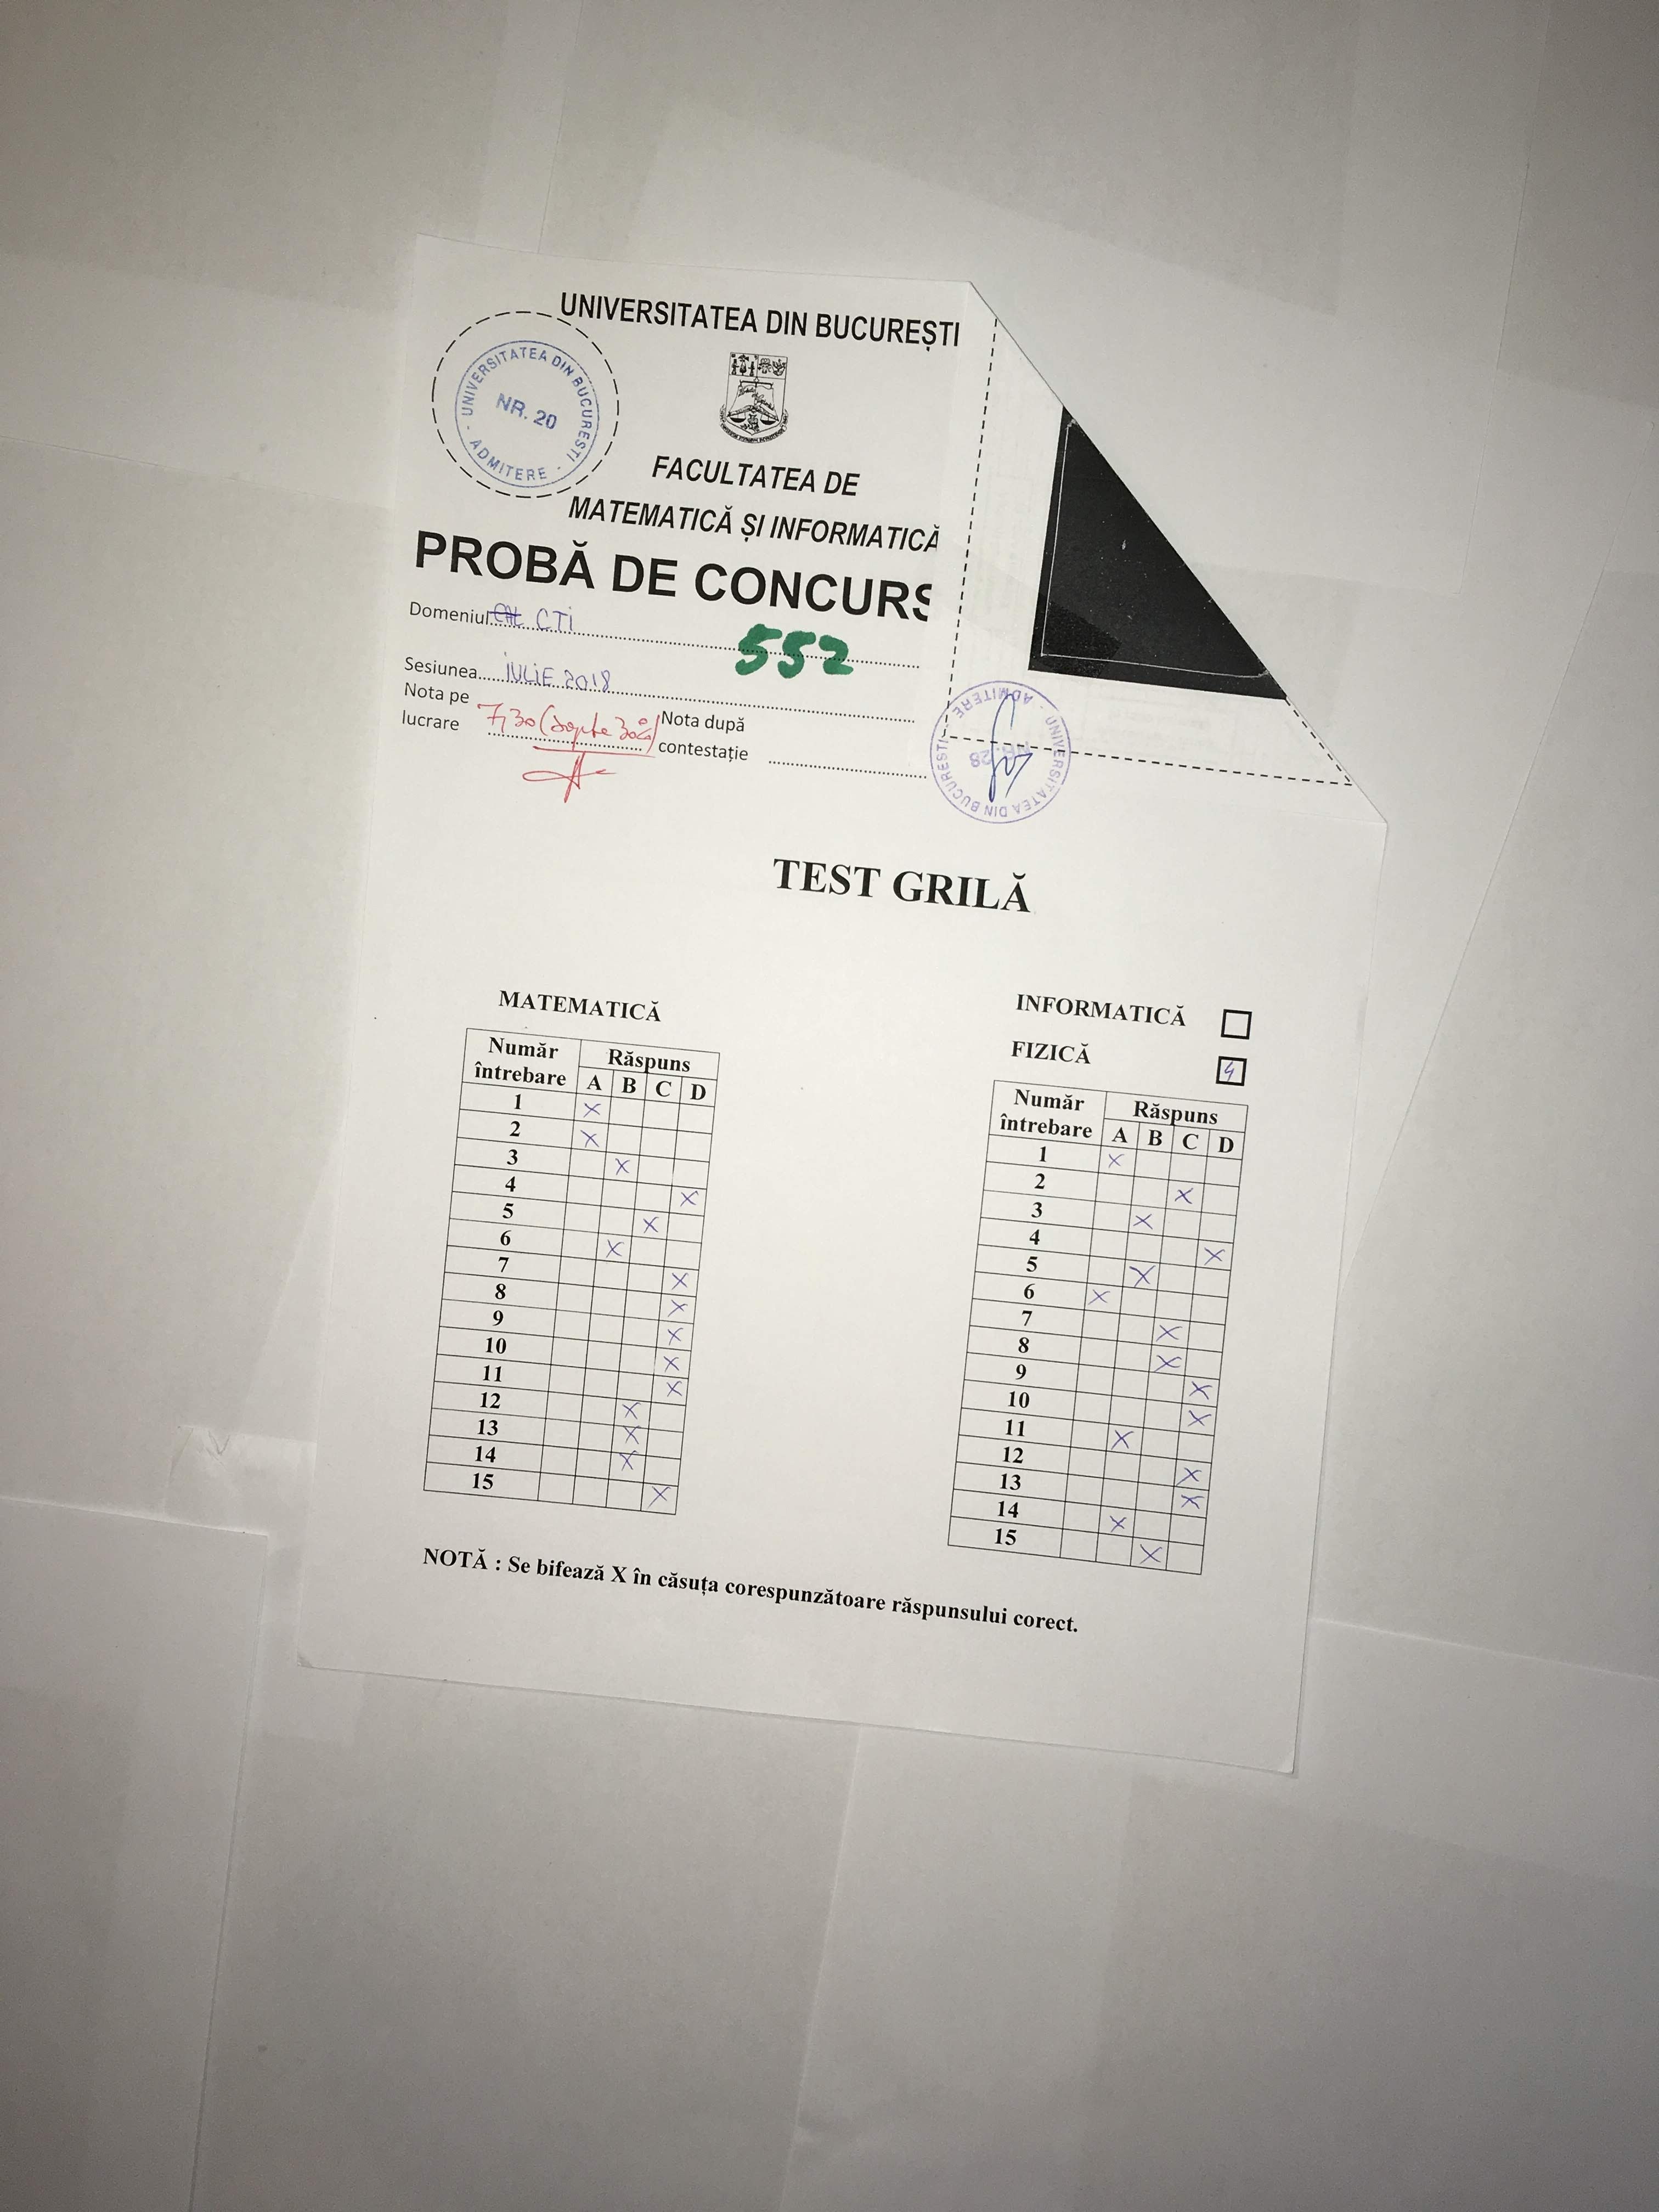 UNIVERSITATEA DIN BUCUREȘTI
UNIVERSITATEA DIN BUCURESTI - ADMITERE -
NR. 20
FACULTATEA DE
MATEMATICĂ ȘI INFORMATICĂ
PROBĂ DE CONCURS
Domeniul CTi
552
Sesiunea iULiE 2018
Nota pe lucrare 7,30 (șapte 30%)
Nota după contestație
UNIVERSITATEA DIN BUCURESTI - ADMITERE -
NR. 28
TEST GRILĂ
MATEMATICĂ
Număr întrebare Răspuns
A B C D
1 X
2 X
3 X
4 X
5 X
6 X
7 X
8 X
9 X
10 X
11 X
12 X
13 X
14 X
15 X
INFORMATICĂ
FIZICĂ 4
Număr întrebare Răspuns
A B C D
1 X
2 X
3 X
4 X
5 X
6 X
7 X
8 X
9 X
10 X
11 X
12 X
13 X
14 X
15 X
NOTĂ : Se bifează X în căsuța corespunzătoare răspunsului corect.